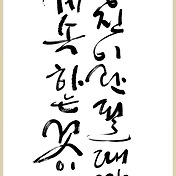 진이란 될 때
계속 하는 것이